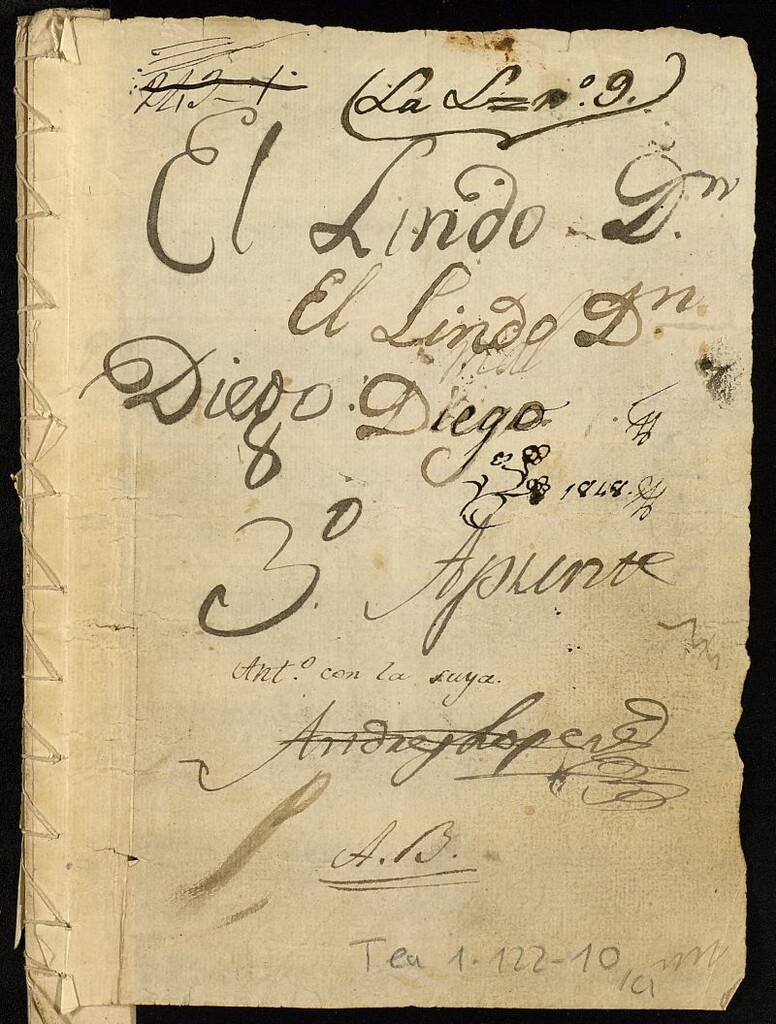 (La L= nº. 9.)
El Lindo D.n
El Lindo Dn
Diego. Diego
1818.
3.º Apunte
Ant.º con la suya.
Andres Lopez
A. B.
Tea 1-122-10